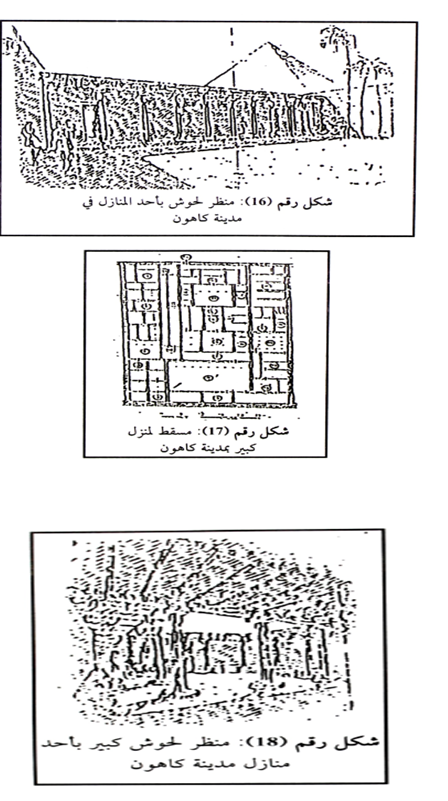 شكل رقم (16): منظر لحوش بأحد المنازل في
مدينة كاهون
شكل رقم (17): مسقط لمنزل
كبير بمدينة كاهون
شكل رقم (18): منظر لحوش كبير بأحد
منازل مدينة كاهون